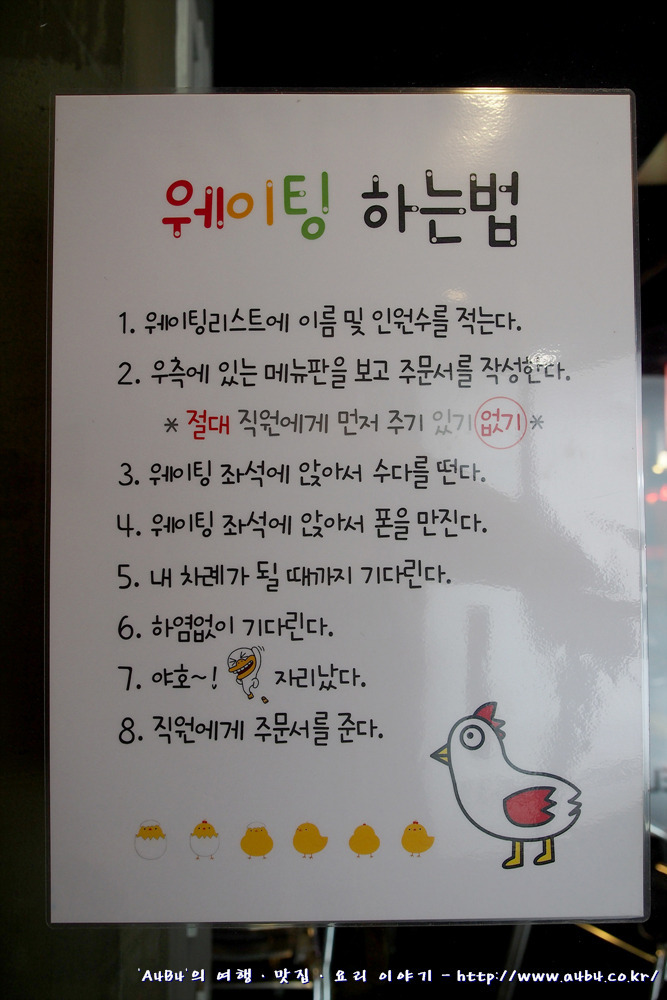 웨이팅 하는법
1. 웨이팅리스트에 이름 및 인원수를 적는다.
2. 우측에 있는 메뉴판을 보고 주문서를 작성한다.
* 절대 직원에게 먼저 주기 있기 없기 *
3. 웨이팅 좌석에 앉아서 수다를 떤다.
4. 웨이팅 좌석에 앉아서 폰을 만진다.
5. 내 차례가 될 때까지 기다린다.
6. 하염없이 기다린다.
7. 야호~! 자리났다.
8. 직원에게 주문서를 준다.
'AuBu'의 여행·맛집·요리 이야기 - http://www.aubu.co.kr/